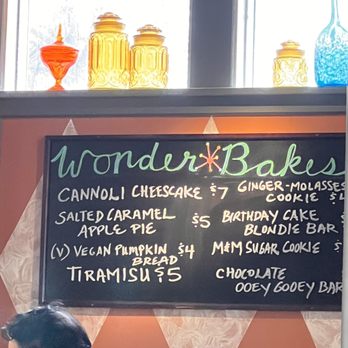 Wonder*Bakes
CANNOLI CHEESCAKE $7
SALTED CARAMEL
APPLE PIE $5
(V) VEGAN PUMPKIN
BREAD $4
TIRAMISU $5
GINGER-MOLASSES
COOKIE $
BIRTHDAY CAKE
BLONDIE BAR $
M&M SUGAR COOKIE $
CHOCOLATE
OOEY GOOEY BAR